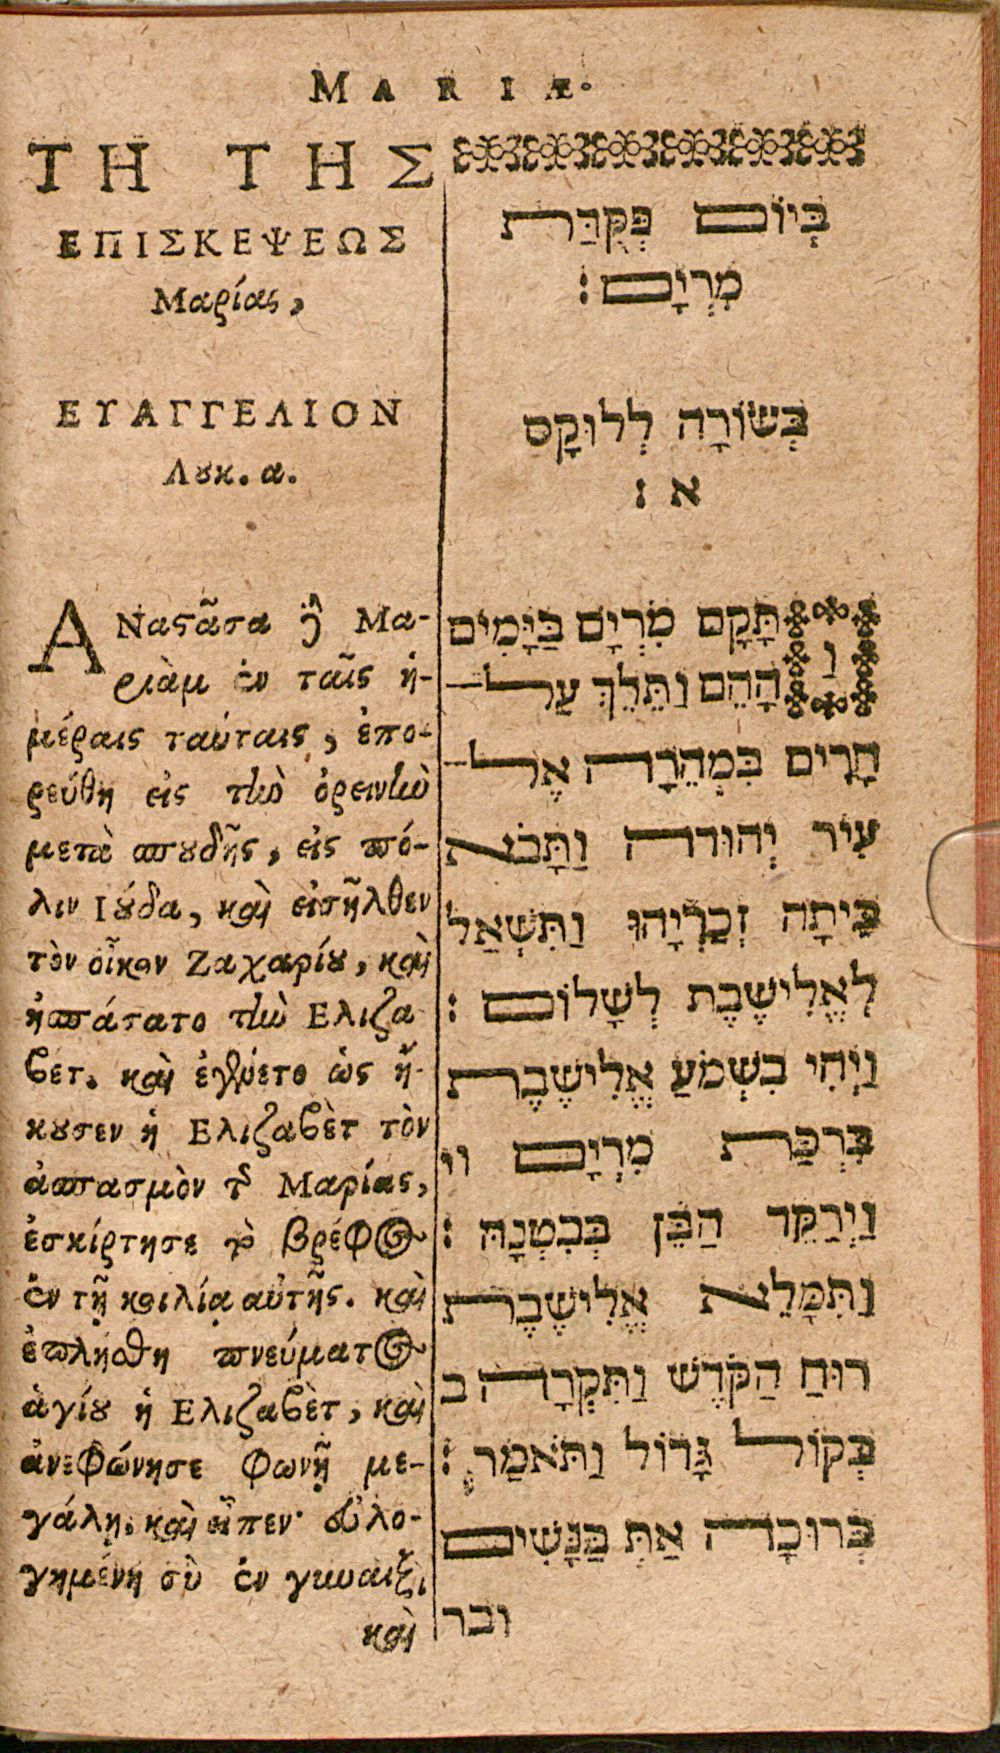 MARIÆ.
ΤΗ ΤΗΣ
ΕΠΙΣΚΕΨΕΩΣ
Μαρίας,
ΕΥΑΓΓΕΛΙΟΝ
Λȣκ. α.
ΑΝαςᾶσα δὲ Μα-
ριὰμ ἐν ταῖς ἡ-
μέραις ταύταις, ἐπο-
ρεύθη εἰς τὴν ὀρεινὴν
μετὰ σπȣδῆς, εἰς πό-
λιν Ιȣ́δα, καὶ εἰσῆλθεν
τὸν οἶκον Ζαχαρίȣ, καὶ
ἠσπάσατο τὴν Ελιζα
βετ. καὶ ἐγένετο ὡς ἤ-
κȣσεν ἡ Ελιζαβὲτ τὸν
ἀσπασμὸν τῆς Μαρίας,
ἐσκίρτησε τὸ βρέφος
ἐν τῇ κοιλίᾳ αὐτῆς. καὶ
ἐπλήσθη πνεύματος
ἁγίȣ ἡ Ελιζαβὲτ, καὶ
ἀνεφώνησε φωνῇ με-
γάλῃ, καὶ εἶπεν· εὐλο-
γημένη σὺ ἐν γυναιξὶ,
καὶ
בְּיוֹם פְּקֻדַּת
מִרְיָם :
בְּשׂוֹרָה לְלוּקָס
א :
וַתָּקָם מִרְיָם בַּיָּמִים
הָהֵם וַתֵּלֵךְ עַל־
הָרִים בִּמְהֵרָה אֶל־
עִיר יְהוּדה וַתָּבֹא
בֵּיתָה זְכַרְיָהוּ וַתִּשְׁאַל
לֶאֱלִישֶׁבֶת לְשָׁלוֹם :
וַיְהִי בִשְׁמֹעַ אֱלִישֶׁבֶת
בִּרְכַּת מִרְיָם וי
וַיְרַקֵּד הַבֵּן בְּבִטְנָהּ :
וַתִּמָּלֵא אֱלִישֶׁבֶת
רוּחַ הַקֹּדֶשׁ וַתִּקְרָה ב
בְּקוֹל גָּדוֹל וַתֹּאמַר :
בְּרוּכָה אַתְּ בַּנָּשִׁים
ובר